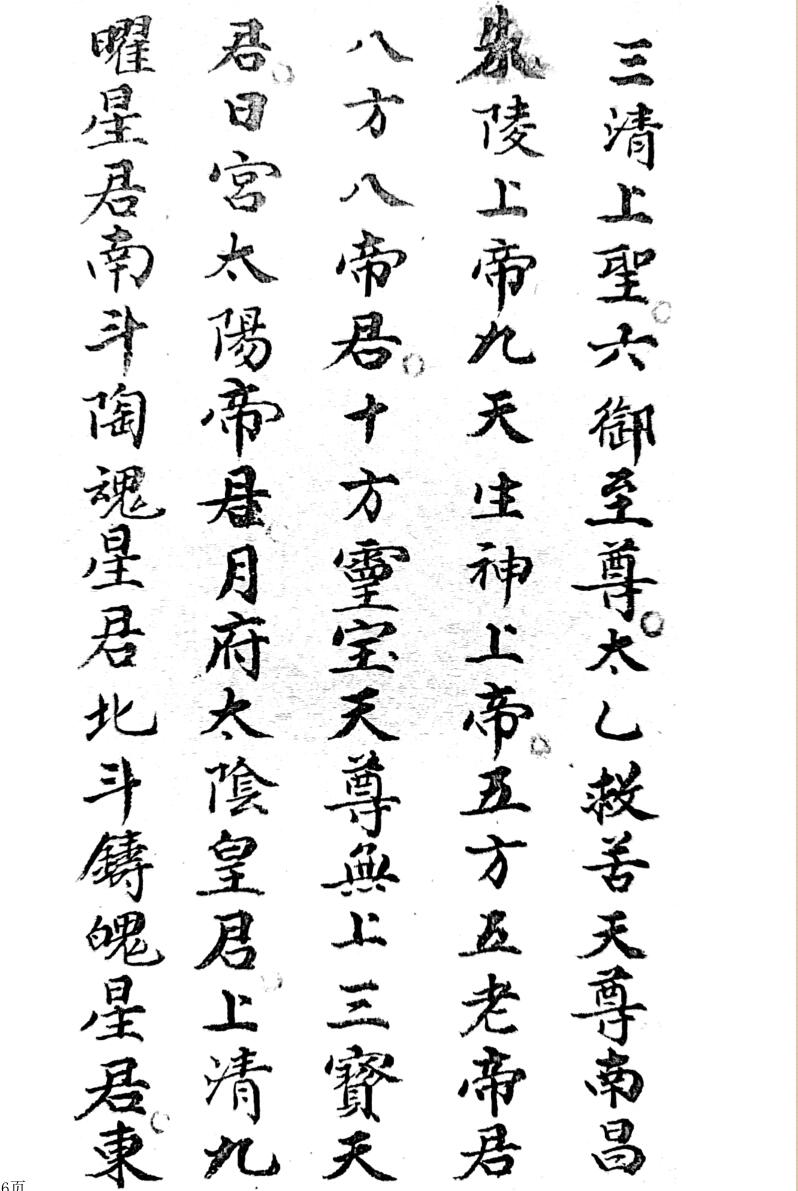 三清上聖六御至尊太乙救苦天尊南昌
朱陵上帝九天生神上帝五方五老帝君
八方八帝君十方靈宝天尊無上三寶天
君日宮太陽帝君月府太陰皇君上清九
曜星君南斗陶魂星君北斗鑄魄星君東
6页